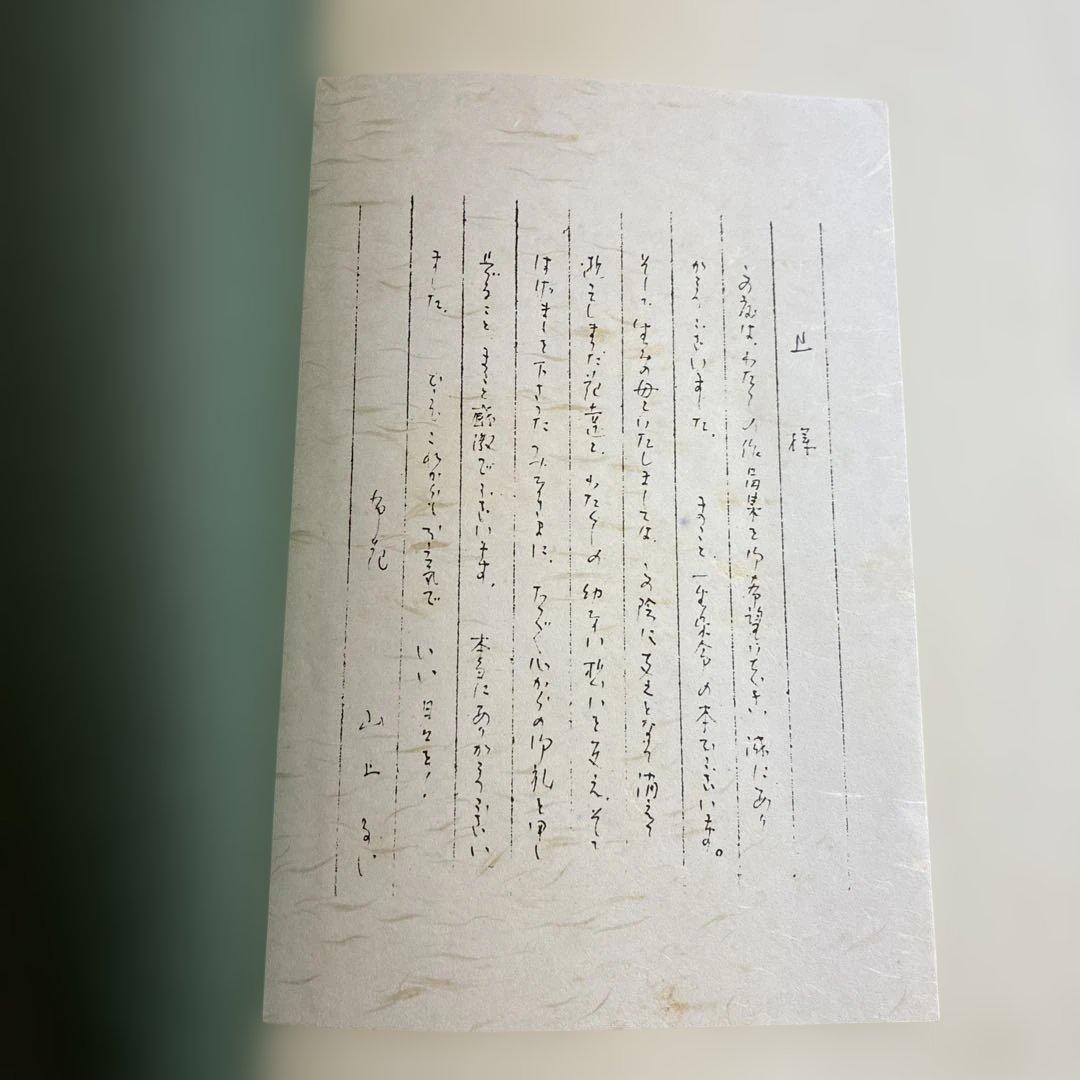 上 様
この度は、わたくしの作品集を御希望いただき、誠にあり
がとうございました。 まこと、一生 の本でございます。
そして、生みの母といたしましては、 陰に支えとなり 消えて
しまった 達と、わたくしの幼ない想いを支え、そして
はげまして下さったみなさまに、ただただ心からの御礼を申し
上げること、まこと感激でございます。 本当にありがとうござい
ました。 どうぞこれからもお元気で いい日々を!
山上 るい